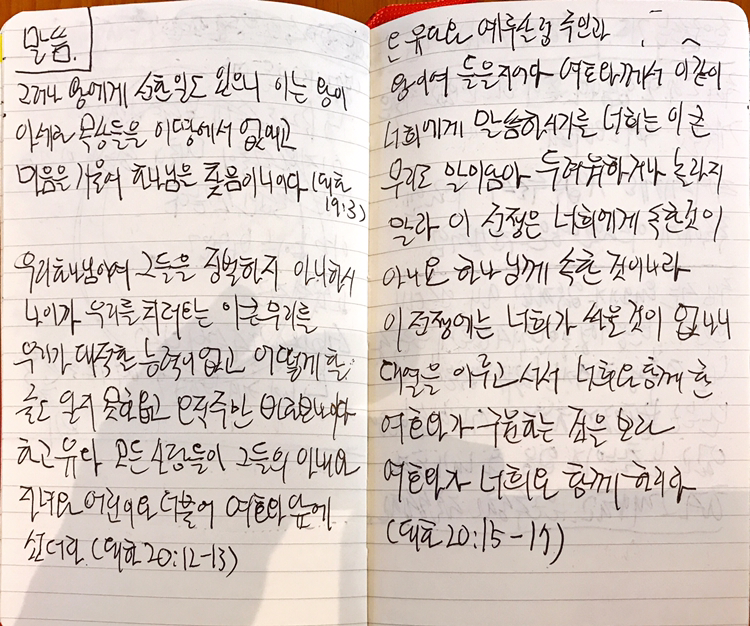 말씀.
그러나 왕에게 선한 일도 있으니 이는 왕이
아세라 목상들을 이 땅에서 없애고
마음을 기울여 하나님을 찾음이니이다 (대하
19:3)
우리 하나님이여 그들을 징벌하지 아니하시
나이까 우리를 치러 오는 이 큰 무리를
우리가 대적할 능력이 없고 어떻게 할
줄도 알지 못하옵고 오직 주만 바라보나이다
하고 유다 모든 사람들이 그들의 아내와
자녀와 어린이와 더불어 여호와 앞에
섰더라 (대하 20:12-13)
온 유다와 예루살렘 주민과
왕이여 들을지어다 여호와께서 이같이
너희에게 말씀하시기를 너희는 이 큰
무리로 말미암아 두려워하거나 놀라지
말라 이 전쟁은 너희에게 속한 것이
아니요 하나님께 속한 것이니라
이 전쟁에는 너희가 싸울 것이 없나니
대열을 이루고 서서 너희와 함께 한
여호와가 구원하는 것을 보라
여호와가 너희와 함께 하리라
(대하 20:15-17)